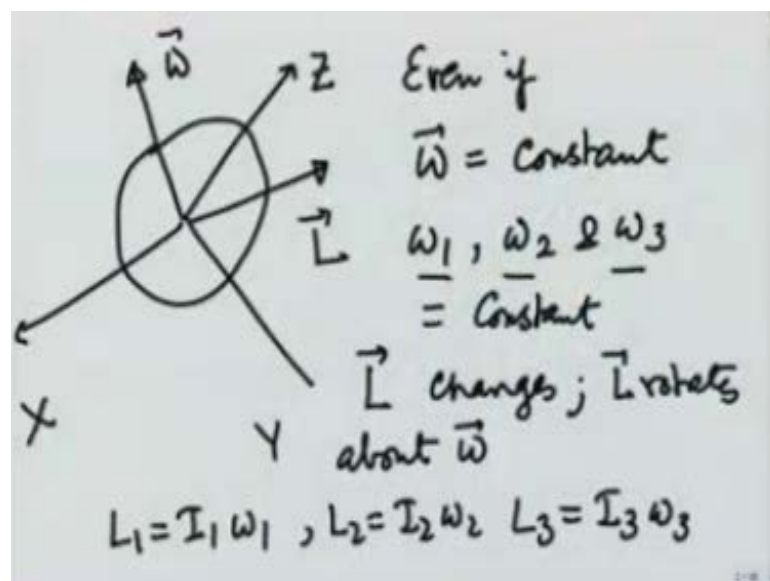 ω⃗
Z Even if
ω⃗ = Constant
L⃗ ω1, ω2 & ω3
= Constant
X Y L⃗ changes; L⃗ rotates
about ω⃗
L1 = I1 ω1, L2 = I2 ω2 L3 = I3 ω3